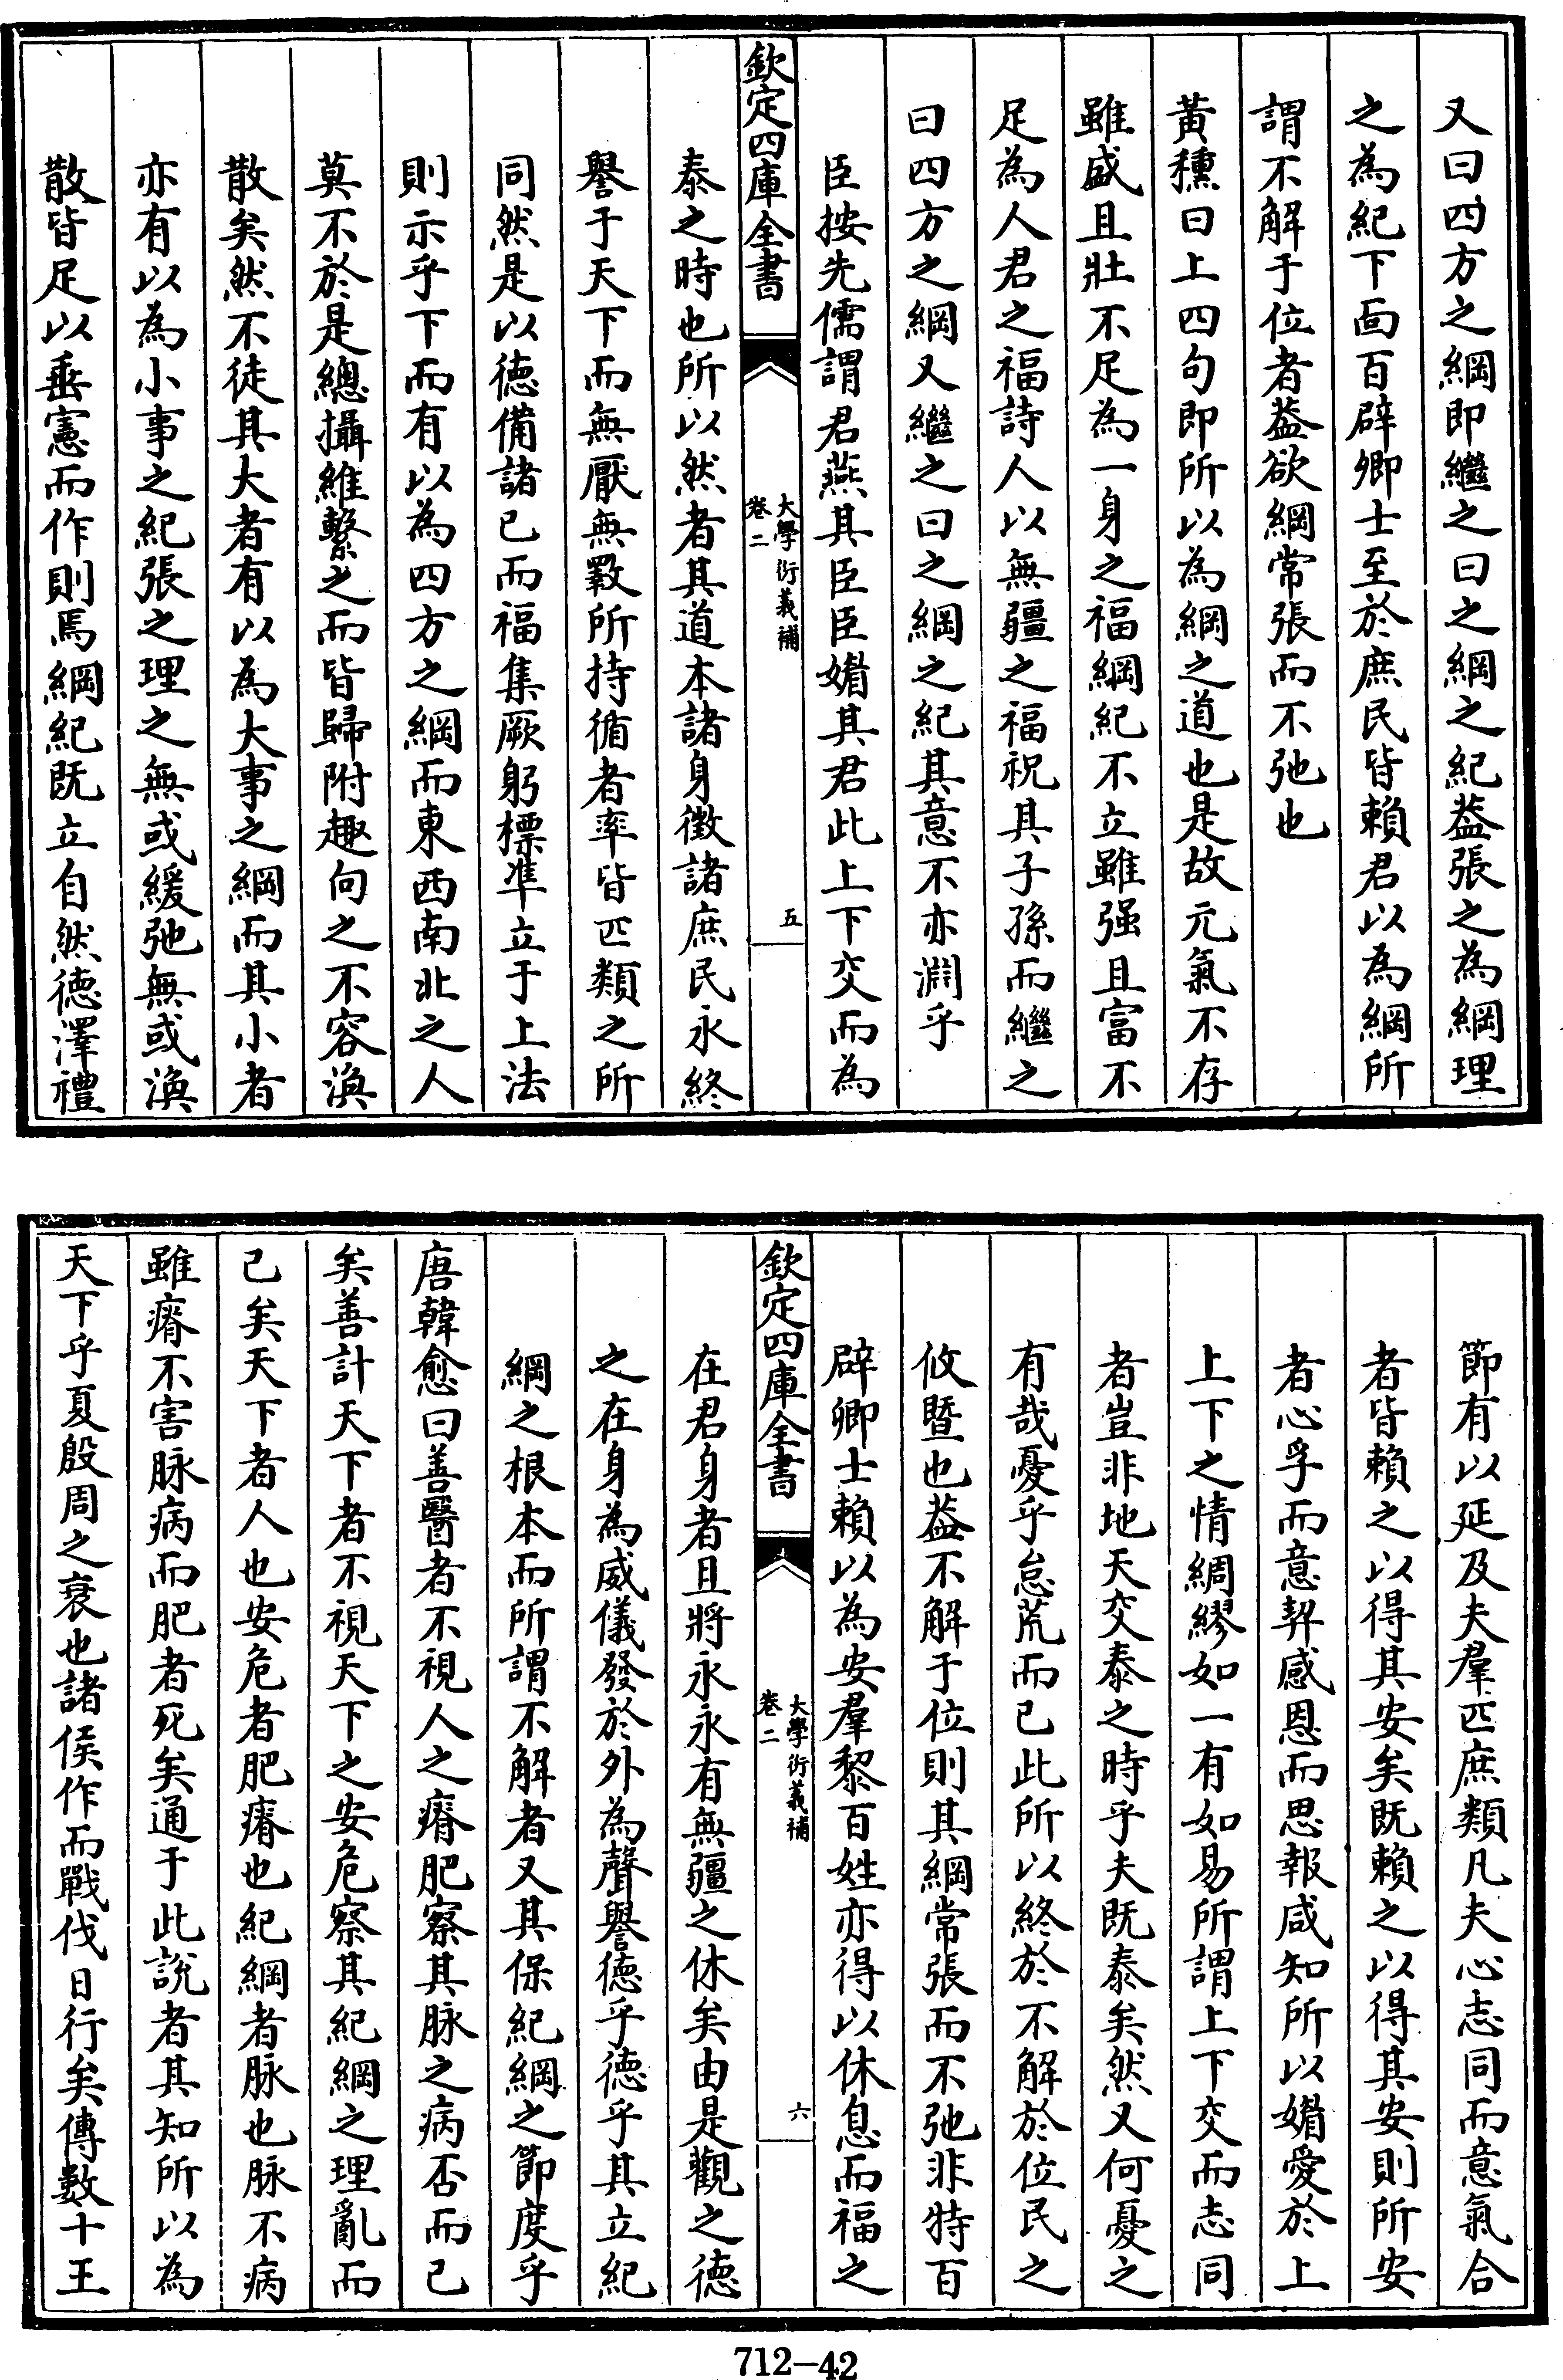 又曰四方之綱即繼之曰之綱之紀葢張之為綱理
之為紀下面百辟卿士至於庶民皆賴君以為綱所
謂不解于位者葢欲綱常張而不弛也
黃櫄曰上四句即所以為綱之道也是故元氣不存
雖盛且壯不足為一身之福綱紀不立雖强且富不
足為人君之福詩人以無疆之福祝其子孫而繼之
曰四方之綱又繼之曰之綱之紀其意不亦淵乎
臣按先儒謂君燕其臣臣媚其君此上下交而為
欽定四庫全書
大學衍義補
卷二
五
泰之時也所以然者其道本諸身徵諸庶民永終
譽于天下而無厭無斁所持循者率皆匹類之所
同然是以徳備諸已而福集厥躬標凖立于上法
則示乎下而有以為四方之綱而東西南北之人
莫不於是總攝維繫之而皆歸附趣向之不容渙
散矣然不徒其大者有以為大事之綱而其小者
亦有以為小事之紀張之理之無或緩弛無或渙
散皆足以垂憲而作則焉綱紀既立自然徳澤禮
節有以延及夫羣匹庶類凡夫心志同而意氣合
者皆賴之以得其安矣既賴之以得其安則所安
者心孚而意契感恩而思報咸知所以媚愛於上
上下之情綢繆如一有如易所謂上下交而志同
者豈非地天交泰之時乎夫既泰矣然又何憂之
有哉憂乎怠荒而已此所以終於不解於位民之
攸暨也葢不解于位則其綱常張而不弛非特百
辟卿士賴以為安羣黎百姓亦得以休息而福之
欽定四庫全書
大學衍義補
卷二
六
在君身者且將永永有無疆之休矣由是觀之徳
之在身為威儀發於外為聲譽徳乎徳乎其立紀
綱之根本而所謂不解者又其保紀綱之節度乎
唐韓愈曰善醫者不視人之瘠肥察其脉之病否而已
矣善計天下者不視天下之安危察其紀綱之理亂而
已矣天下者人也安危者肥瘠也紀綱者脉也脉不病
雖瘠不害脉病而肥者死矣通于此說者其知所以為
天下乎夏殷周之衰也諸侯作而戰伐日行矣傳數十王
712-42